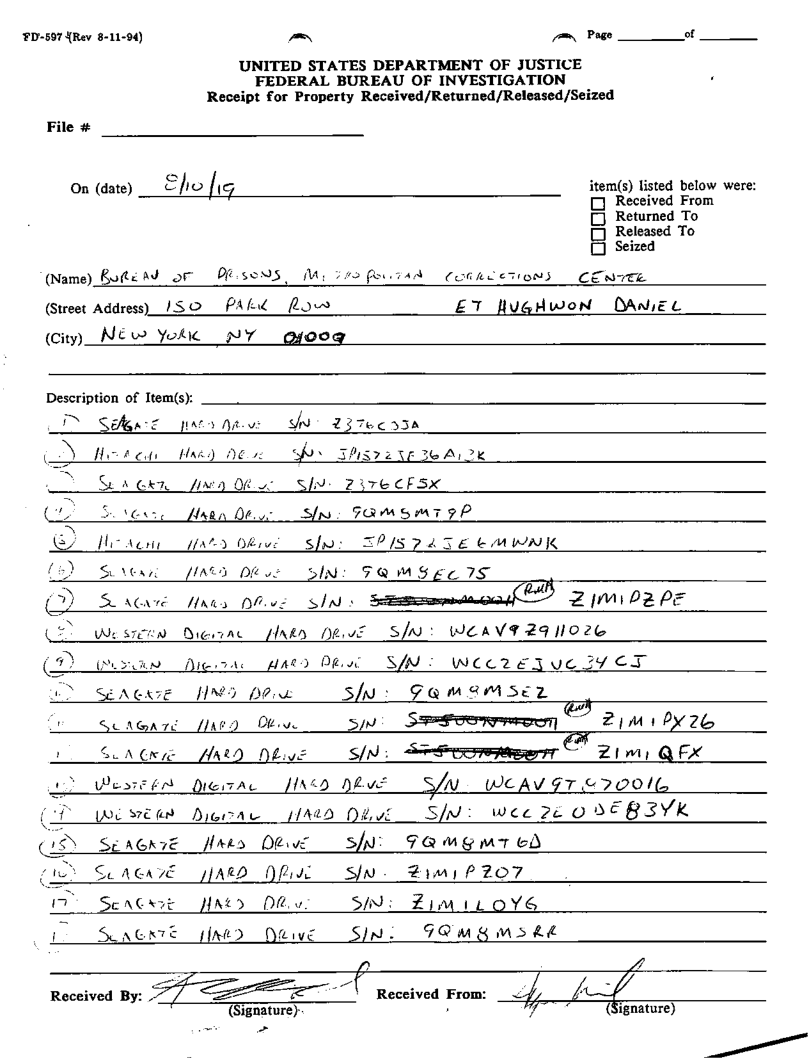 FD-597 (Rev 8-11-94)
Page of
UNITED STATES DEPARTMENT OF JUSTICE
FEDERAL BUREAU OF INVESTIGATION
Receipt for Property Received/Returned/Released/Seized
File #
On (date) 8/10/19
item(s) listed below were:
Received From
Returned To
Released To
Seized
(Name) BUREAU OF PRISONS, METROPOLITAN CORRECTIONS CENTER
(Street Address) 150 PARK ROW ET HUGHWON DANIEL
(City) NEW YORK NY
Description of Item(s):
1 SEAGATE HARD DRIVE S/N: Z376C3JA
HITACHI HARD DRIVE S/N:
SEAGATE HARD DRIVE S/N: Z376CF5X
(4) SEAGATE HARD DRIVE S/N: 9QM5MT9P
(5) HITACHI HARD DRIVE S/N:
(6) SEAGATE HARD DRIVE S/N:
(7) SEAGATE HARD DRIVE S/N: Z1M1PZPE
WESTERN DIGITAL HARD DRIVE S/N: WCAV9Z911026
(9) WESTERN DIGITAL HARD DRIVE S/N: WCC2EJVC34CJ
SEAGATE HARD DRIVE S/N: 9QM8MSEZ
11 SEAGATE HARD DRIVE S/N: Z1M1PX26
SEAGATE HARD DRIVE S/N: Z1M1QFX
13 WESTERN DIGITAL HARD DRIVE S/N:
14 WESTERN DIGITAL HARD DRIVE S/N:
(15) SEAGATE HARD DRIVE S/N: 9QM8MT6D
(16) SEAGATE HARD DRIVE S/N: Z1M1PZ07
17 SEAGATE HARD DRIVE S/N: Z1M1L0YG
SEAGATE HARD DRIVE S/N: 9QM8MSRR
Received By: Received From:
(Signature) (Signature)